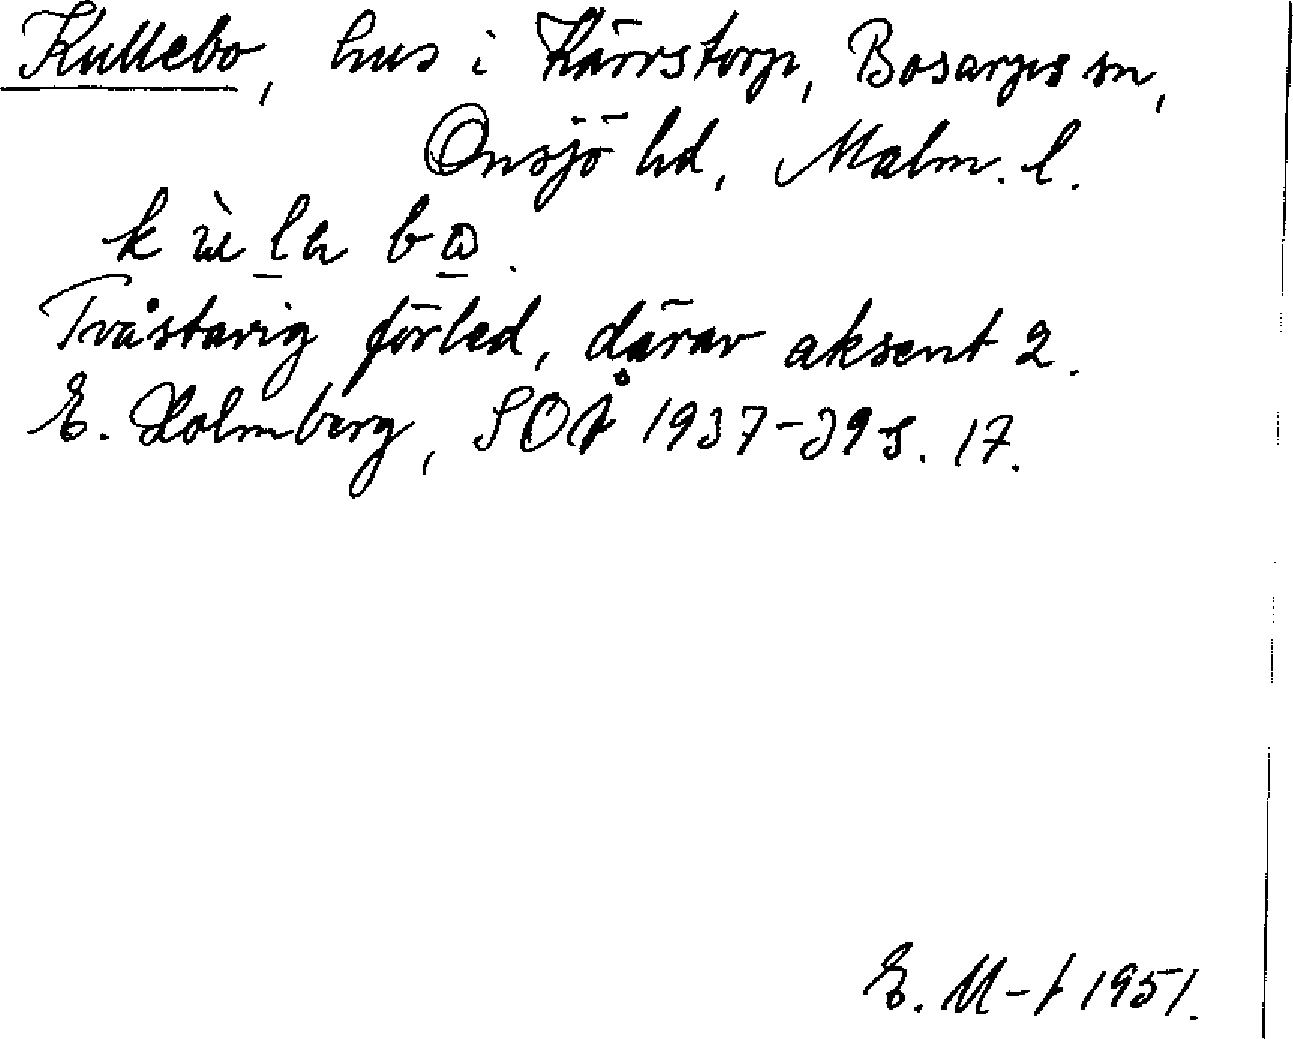 Kullebo, hus i Kärrstorp, Bosarps sn,
Onsjö hd, Malm. l.
Tvåstavig förled, därav aksent 2.
E. Holmberg, SOÅ 1937-39 s. 17.
E. M-t 1951.